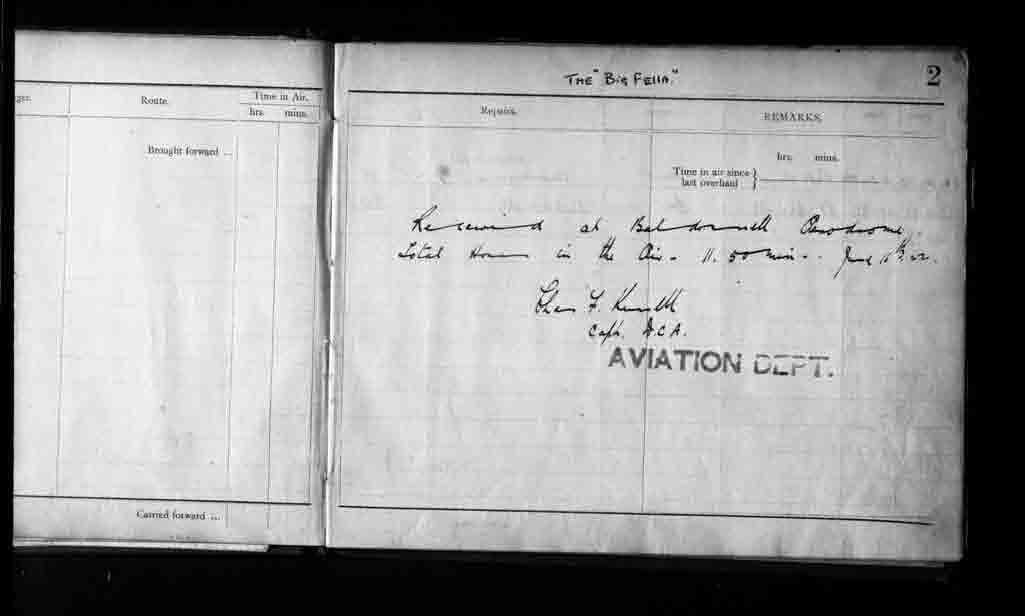 ger.
Route.
Time in Air.
hrs. mins.
Brought forward ...
Carried forward ...
THE "BIG FELLA."
2
Repairs.
REMARKS.
hrs. mins.
Time in air since
last overhaul }
Received at Baldonnell Aerodrome.
Total Hours in the Air - 11. 50 min - 16th. 22.
Chas F. Russell
Capt.
AVIATION DEPT.